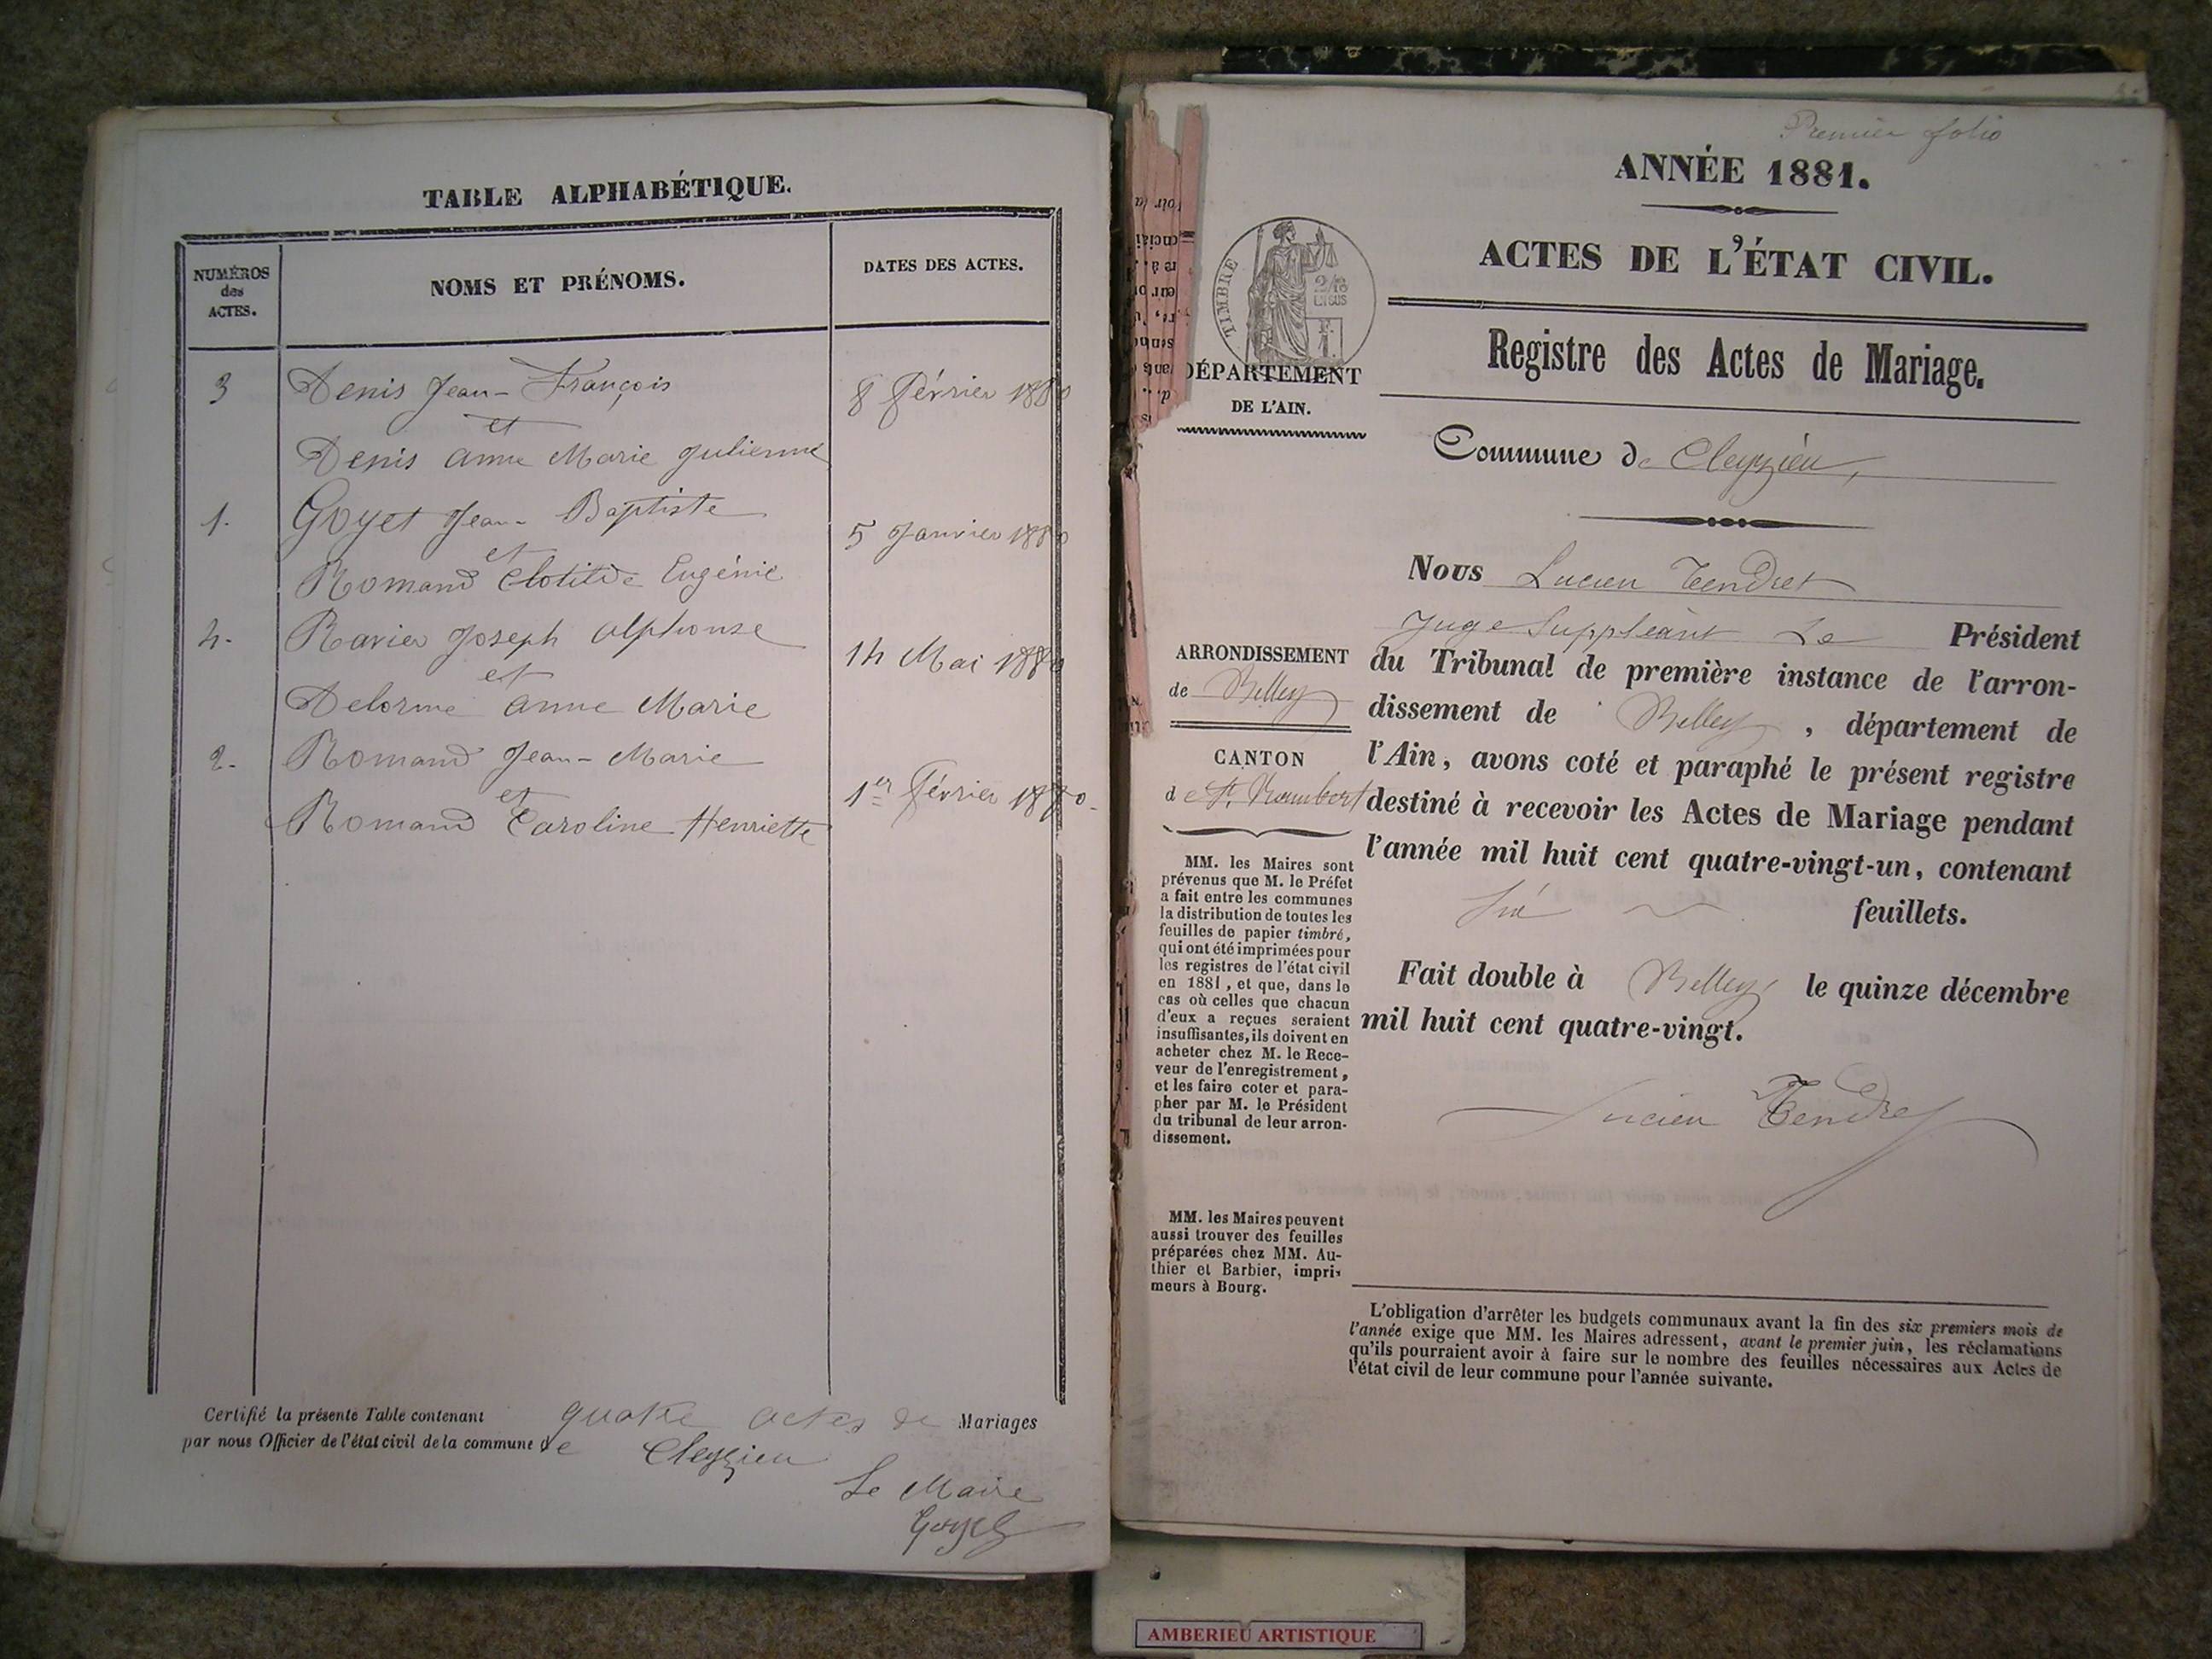 TABLE ALPHABÉTIQUE.
NUMÉROS
des
ACTES.
NOMS ET PRÉNOMS.
DATES DES ACTES.
3 Denis Jean-François 8 Février 1880
et
Denis Anne Marie Julienne
1. Goyet Jean-Baptiste 5 Janvier 1880
et
Romand Clotilde Eugénie
4. Ravier Joseph Alphonse 14 Mai 1880
et
Delorme Anne Marie
2. Romand Jean-Marie 1er Février 1880.
et
Romand Caroline Henriette
Certifié la présente Table contenant quatre actes de Mariages
par nous Officier de l'état civil de la commune de Cleyzieu
Le Maire
Goyet
Premier folio
ANNÉE 1881.
ACTES DE L'ÉTAT CIVIL.
Registre des Actes de Mariage.
TIMBRE
2/10
EN SUS
DÉPARTEMENT
DE L'AIN.
Commune de Cleyzieu,
Nous Lucien Tendret
Juge Suppléant Le Président
du Tribunal de première instance de l'arron-
dissement de Belley, département de
l'Ain, avons coté et paraphé le présent registre
destiné à recevoir les Actes de Mariage pendant
l'année mil huit cent quatre-vingt-un, contenant
feuillets.
Fait double à Belley, le quinze décembre
mil huit cent quatre-vingt.
Lucien Tendret
ARRONDISSEMENT
de Belley
CANTON
de St. Rambert
MM. les Maires sont
prévenus que M. le Préfet
a fait entre les communes
la distribution de toutes les
feuilles de papier timbré,
qui ont été imprimées pour
les registres de l'état civil
en 1881, et que, dans le
cas où celles que chacun
d'eux a reçues seraient
insuffisantes, ils doivent en
acheter chez M. le Rece-
veur de l'enregistrement,
et les faire coter et para-
pher par M. le Président
du tribunal de leur arron-
dissement.
MM. les Maires peuvent
aussi trouver des feuilles
préparées chez MM. Au-
thier et Barbier, impri-
meurs à Bourg.
L'obligation d'arrêter les budgets communaux avant la fin des six premiers mois de
l'année exige que MM. les Maires adressent, avant le premier juin, les réclamations
qu'ils pourraient avoir à faire sur le nombre des feuilles nécessaires aux Actes de
l'état civil de leur commune pour l'année suivante.
AMBERIEU ARTISTIQUE